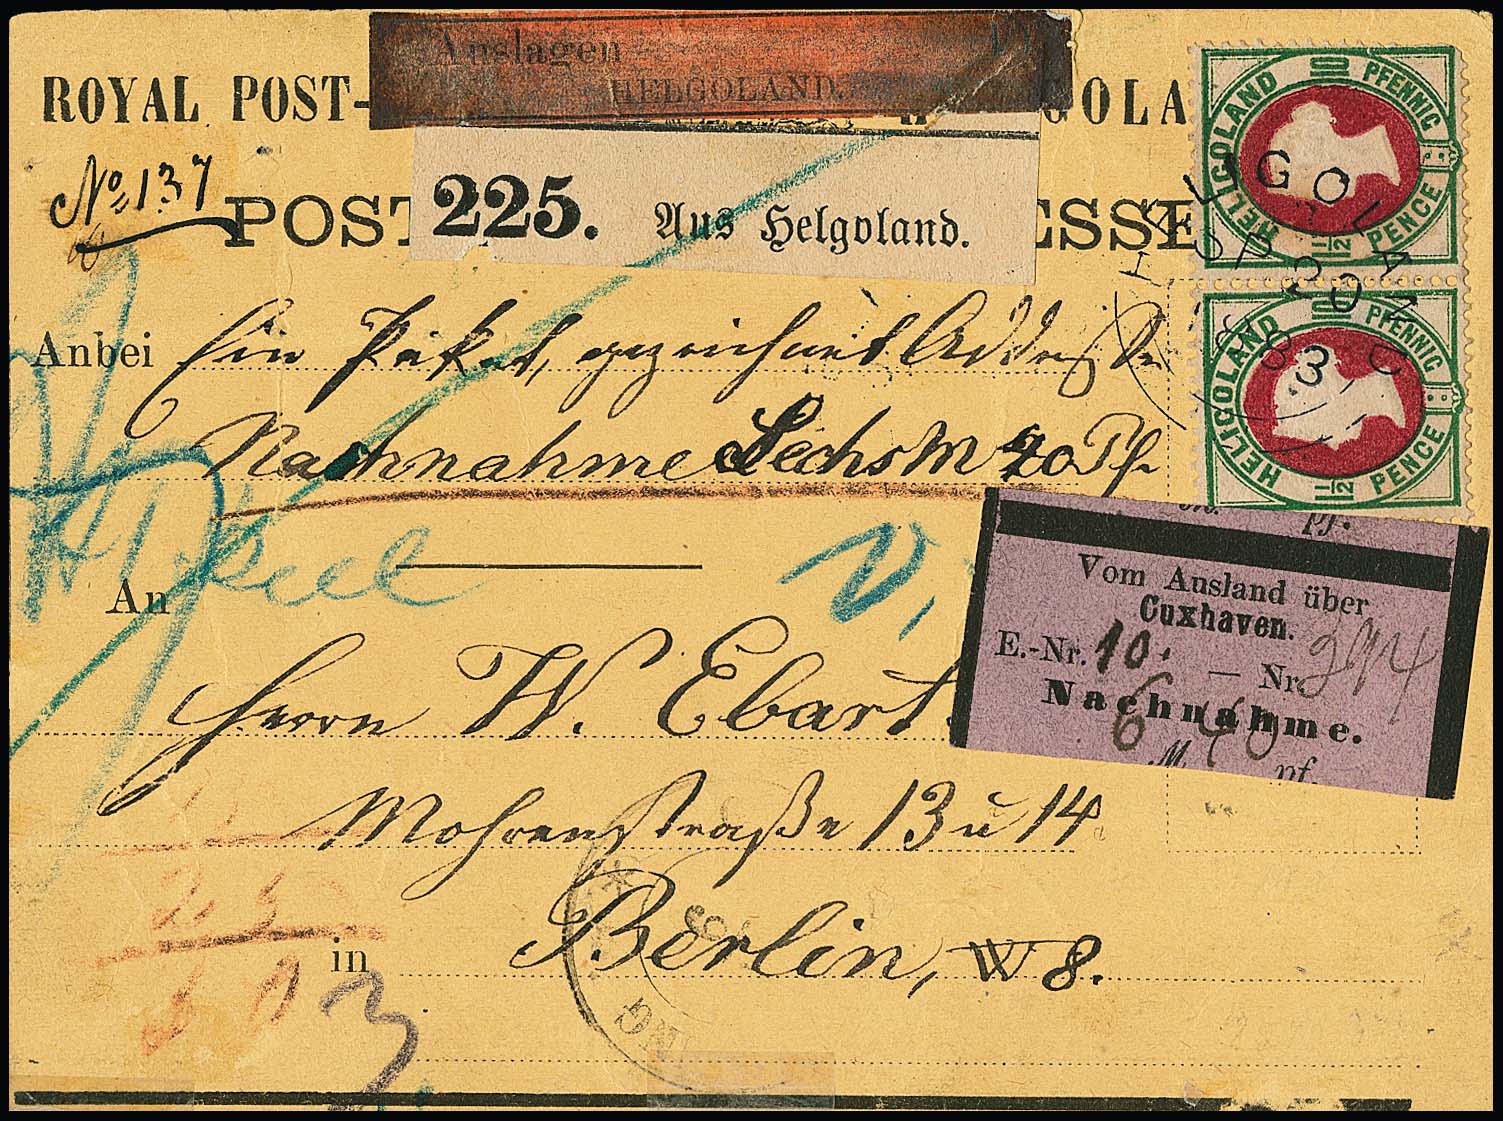 Auslagen
HELGOLAND.
ROYAL POST- GOLA
No 137
POST ESSE
225. Aus Helgoland.
HELGOLAND 10 PFENNIG
1 1/2 PENCE
HELIGOLAND
SP 20
83
HELGOLAND 10 PFENNIG
1 1/2 PENCE
Anbei Ein Paket, gezeichnet Addresse
Nachnahme Sechs M 40 Pf
pf.
Vom Ausland über
Cuxhaven.
E.-Nr. 10. — Nr. 394
Nachnahme.
6 40
M. pf.
V.
An
Herrn W. Ebart.
Mohrenstraße 13 u 14
in Berlin, W 8.
3